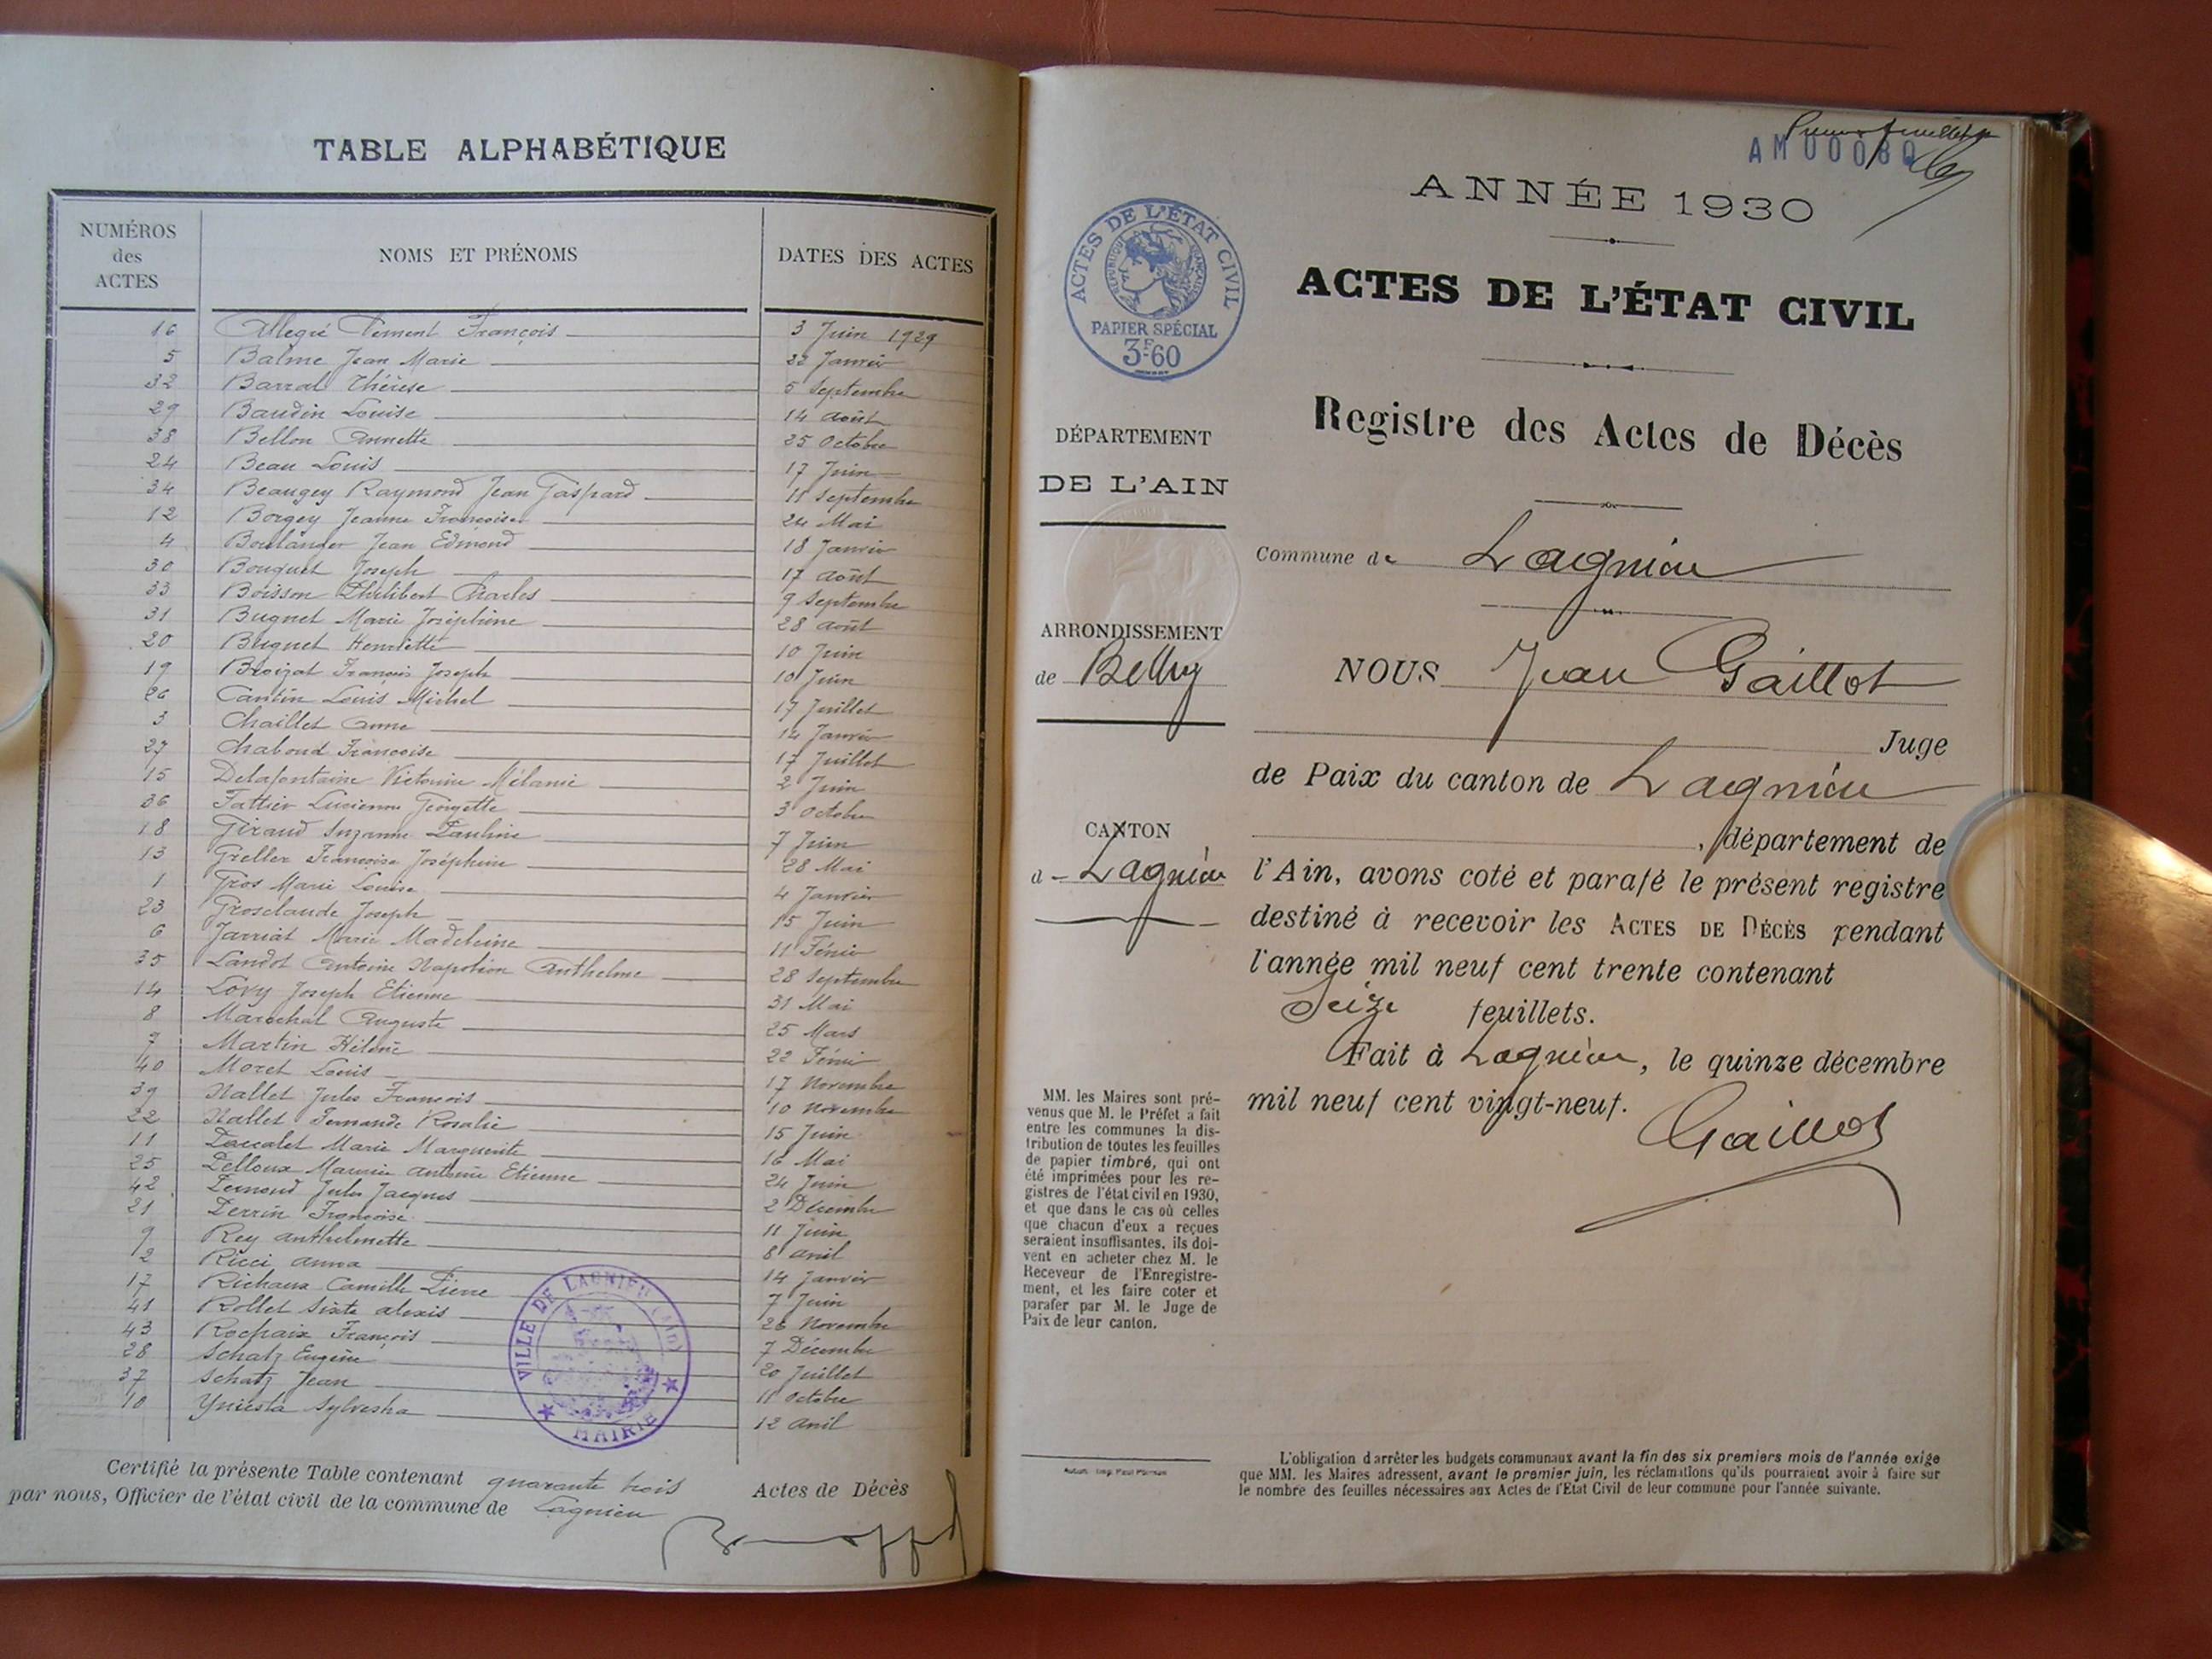 TABLE ALPHABÉTIQUE
NUMÉROS des ACTES NOMS ET PRÉNOMS DATES DES ACTES
16 Allegré Clément François 3 Juin 1929
5 Balme Jean Marie 22 Janvier
32 Barral Thérèse 5 Septembre
29 Baudin Louise 14 Août
38 Bellon Annette 25 Octobre
24 Beau Louis 17 Juin
34 Beaugey Raymond Jean Gaspard 11 Septembre
12 Borgey Jeanne Françoise 24 Mai
4 Boulanger Jean Edmond 18 Janvier
30 Bouquet Joseph 17 Août
33 Boisson Philibert Charles 9 Septembre
31 Bugnet Marie Joséphine 28 Août
20 Buguet Henriette 10 Juin
19 Broizat François Joseph 10 Juin
26 Cantin Louis Michel 17 Juillet
3 Chaillet Anne 14 Janvier
27 Chaboud Françoise 17 Juillet
15 Delafontaine Victorine Mélanie 2 Juin
36 Fattier Lucienne Georgette 3 Octobre
18 Giraud Suzanne Pauline 7 Juin
13 Grellet Françoise Joséphine 28 Mai
1 Gros Marie Louise 4 Janvier
23 Grosclaude Joseph 15 Juin
6 Jarriat Marie Madeleine 11 Février
35 Landot Antoine Napoléon Anthelme 28 Septembre
14 Lovy Joseph Etienne 31 Mai
8 Maréchal Auguste 25 Mars
7 Martin Hélène 22 Février
40 Moret Louis 17 Novembre
39 Nallet Jules François 10 Novembre
22 Nallet Fernande Rosalie 15 Juin
11 Paccalet Marie Marguerite 16 Mai
25 Pelloux Maurice Antoine Etienne 24 Juin
42 Pernoud Jules Jacques 2 Décembre
21 Perrin Françoise 11 Juin
9 Rey Anthelmette 8 Avril
2 Ricci Anna 14 Janvier
17 Richaux Camille Pierre 7 Juin
41 Rollet Sixte Alexis 26 Novembre
43 Rochaix François 7 Décembre
28 Schatz Eugène 20 Juillet
37 Schatz Jean 11 Octobre
10 Yniesta Sylvestra 12 Avril
VILLE DE LAGNIEU (AIN)
MAIRIE
Certifié la présente Table contenant quarante trois Actes de Décès
par nous, Officier de l'état civil de la commune de Lagnieu
Premier feuillet
AM00080
ANNÉE 1930
ACTES DE L'ÉTAT CIVIL
RÉPUBLIQUE FRANÇAISE
PAPIER SPÉCIAL
3F60
ACTES DE L'ÉTAT CIVIL
Registre des Actes de Décès
DÉPARTEMENT
DE L'AIN
Commune de Lagnieu
ARRONDISSEMENT
de Belley
NOUS Jean Gaillot
Juge
de Paix du canton de Lagnieu
CANTON
d Lagnieu
, département de
l'Ain, avons coté et parafé le présent registre
destiné à recevoir les ACTES DE DÉCÈS pendant
l'année mil neuf cent trente contenant
Seize feuillets.
Fait à Lagnieu, le quinze décembre
mil neuf cent vingt-neuf.
Gaillot
MM. les Maires sont pré-
venus que M. le Préfet a fait
entre les communes la dis-
tribution de toutes les feuilles
de papier timbré, qui ont
été imprimées pour les re-
gistres de l'état civil en 1930,
et que dans le cas où celles
que chacun d'eux a reçues
seraient insuffisantes, ils doi-
vent en acheter chez M. le
Receveur de l'Enregistre-
ment, et les faire coter et
parafer par M. le Juge de
Paix de leur canton.
L'obligation d'arrêter les budgets communaux avant la fin des six premiers mois de l'année exige
que MM. les Maires adressent, avant le premier juin, les réclamations qu'ils pourraient avoir à faire sur
le nombre des feuilles nécessaires aux Actes de l'État Civil de leur commune pour l'année suivante.